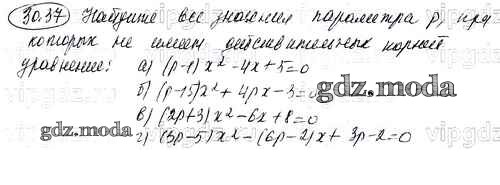 30.37) Найдите все значения параметра p, при
которых не имеет действительных корней
уравнение: а) (p-1)x²-4x+5=0
б) (p-15)x²+4px-3=0
в) (2p+3)x²-6x+8=0
г) (3p-5)x²-(6p-2)x+3p-2=0
gdz.moda
gdz.moda